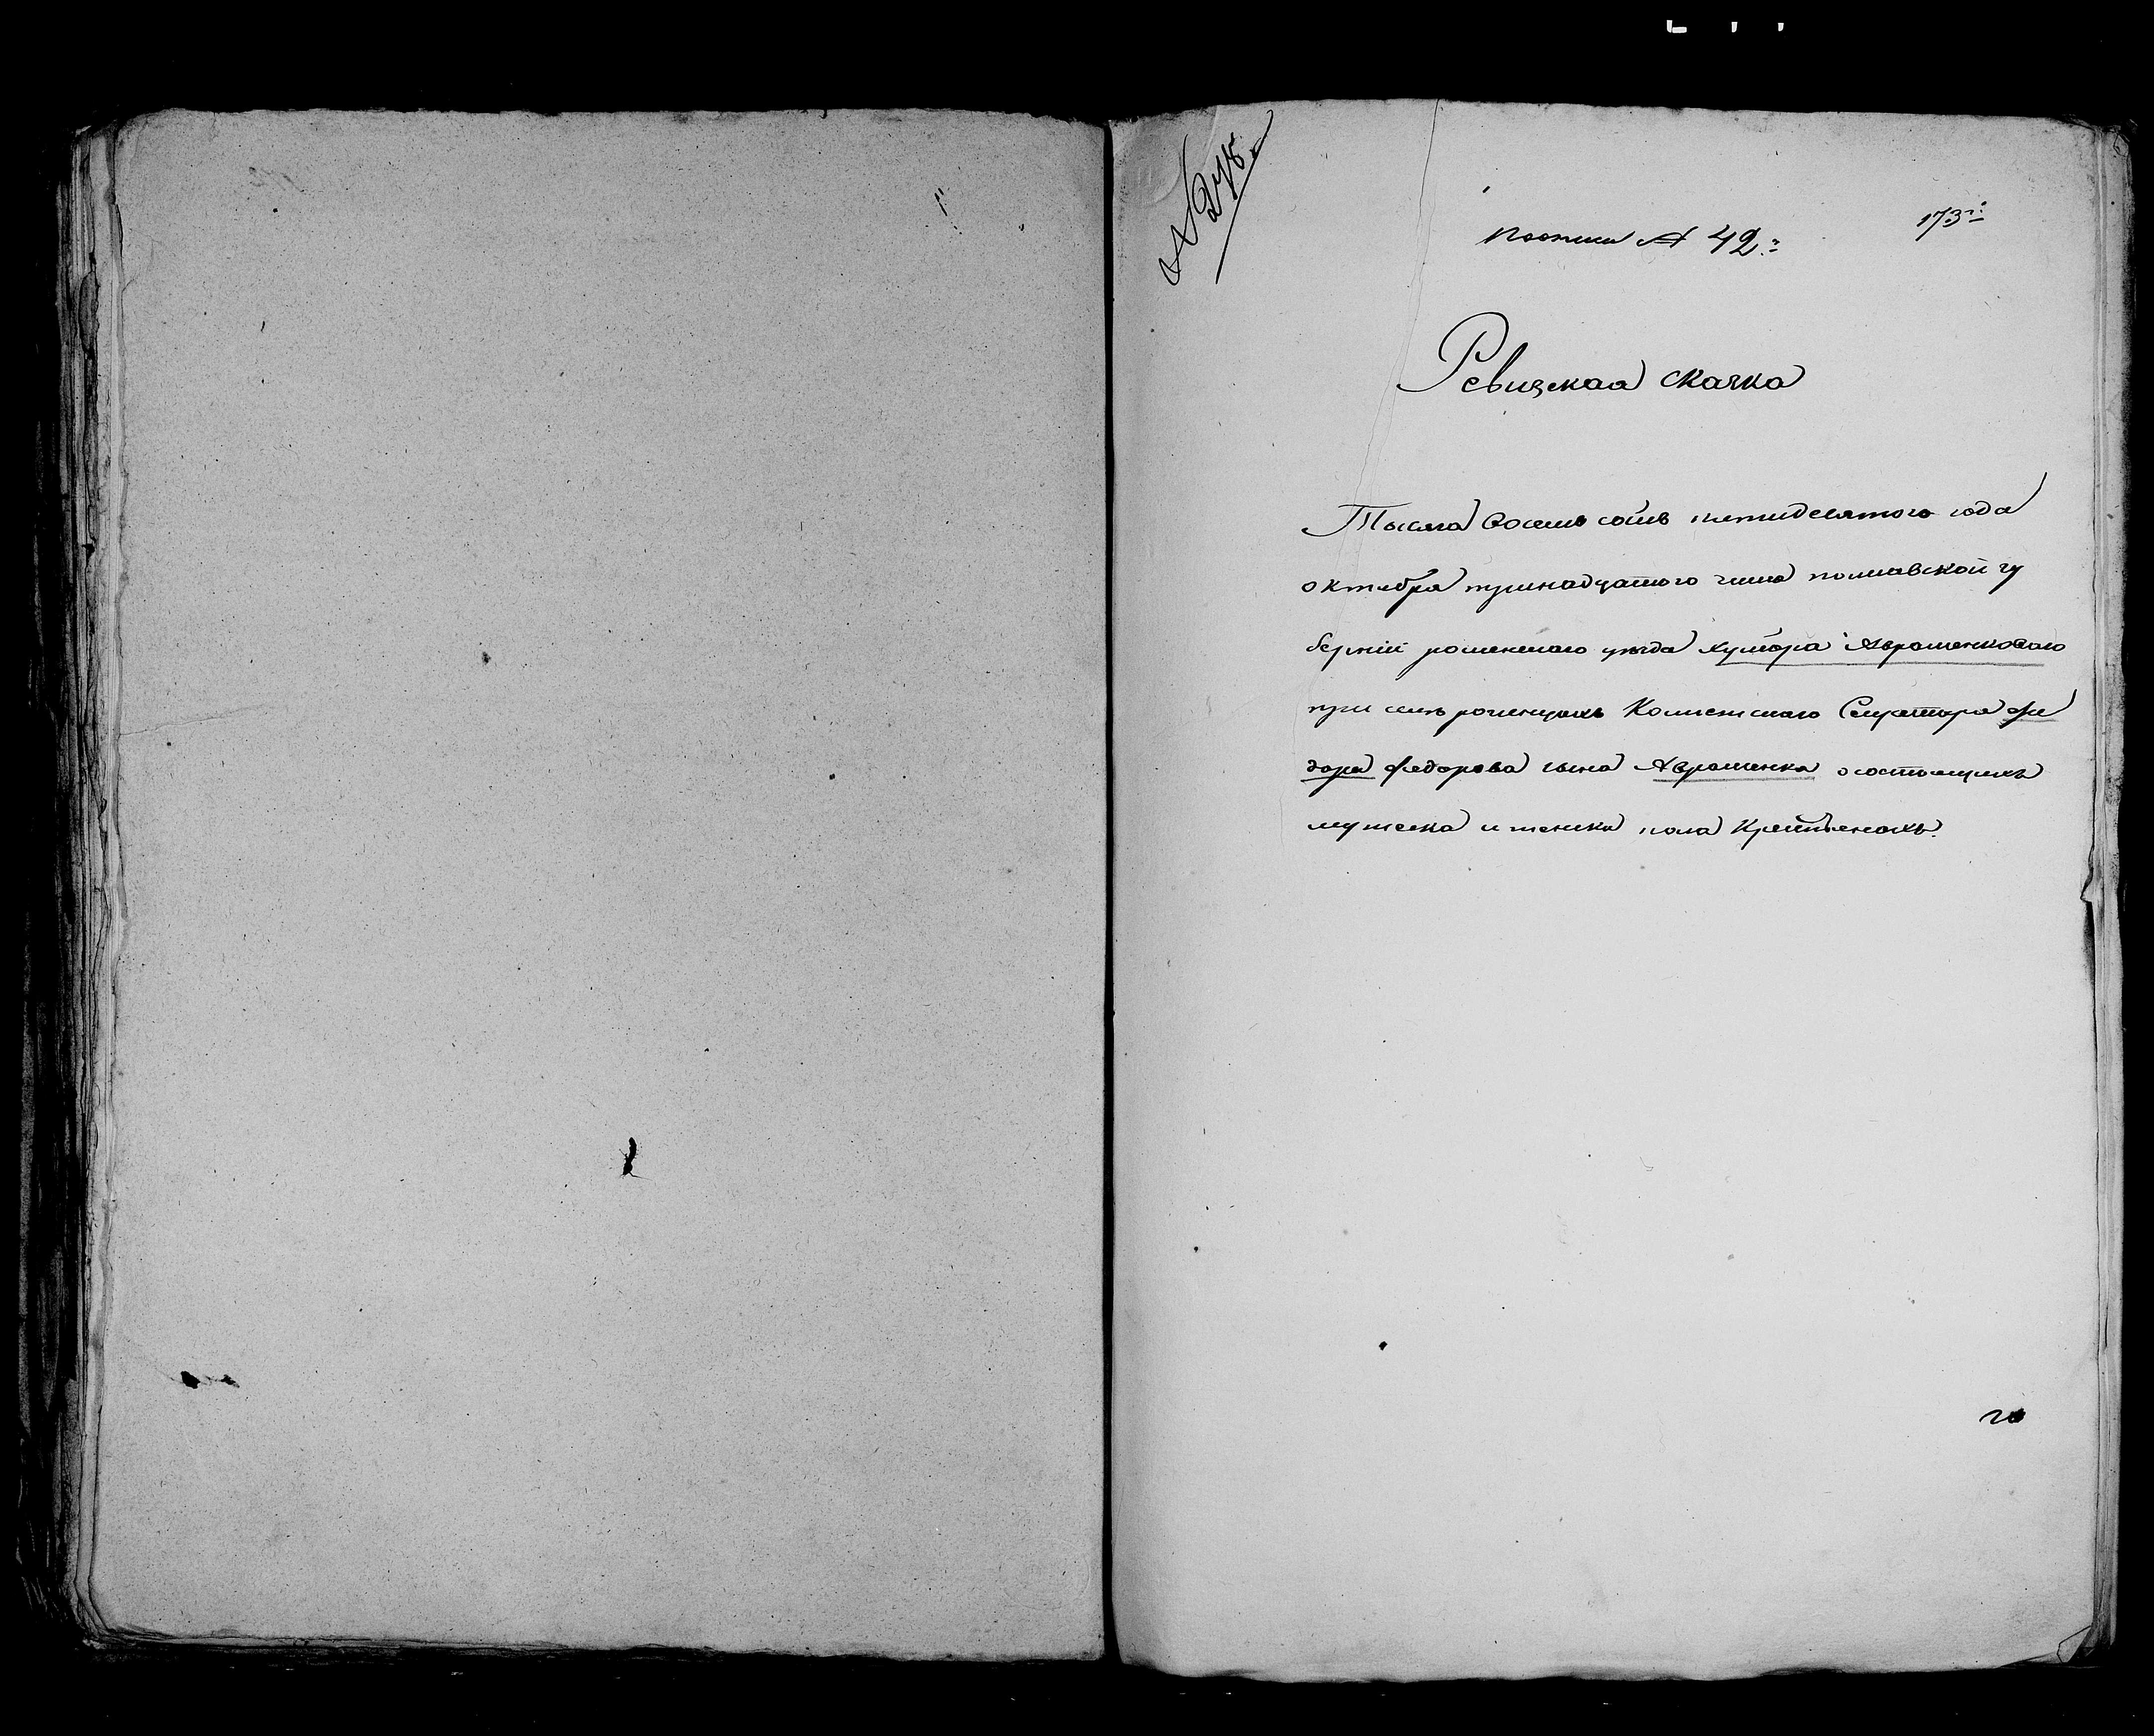 № 278.
173
по описи № 42.
Ревизская скачка
Тысяча восемь сотъ пятидесятого года
октября тринадцатого числа полтавской гу
берніи роменского уезда хутора Аврашенкового
при селе роменцахъ Колежского Секретаря Фе
дора Федорова сына Аврашенка о состоящихъ
мужеска и женска пола Крестьянахъ.